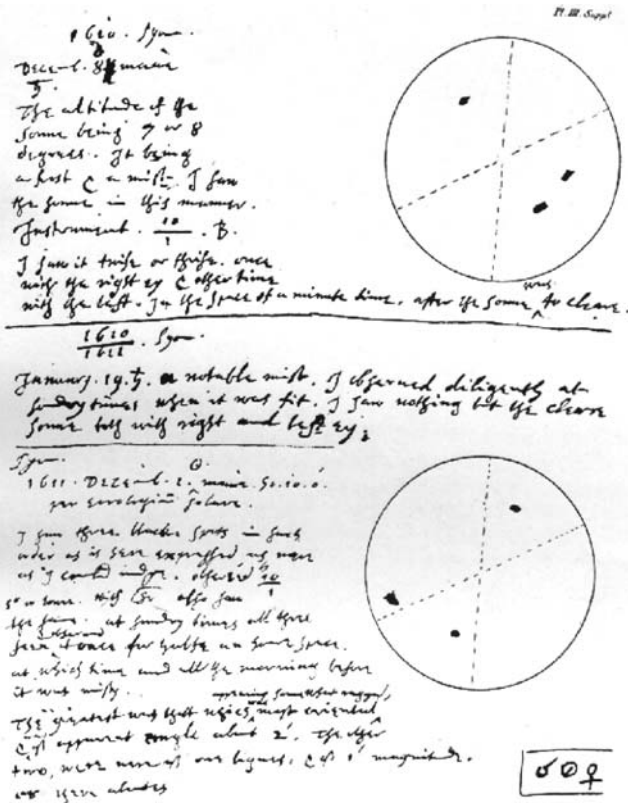 Pl. III. Suppl
1610. Syon.
Decemb. 8 mane
♄.
The altitude of the
sonne being 7 or 8
degrees. It being
a frost & a mist. I saw
the sonne in this manner.
Instrument. 10/1 . B.
I saw it twise or thrise. once
with the right ey & other time
with the left. In the space of a minute time. after the sonne was to cleare.
1610/1611 . Syon.
January. 19. ♄. a notable mist. I observed diligently at
sondry times when it was fit. I saw nothing but the cleare
sonne both with right and left ey.
Syon. ☉
1611. Decemb. 1. mane. 10.0
per horologium
I saw three blacke spots in such
order as is here expressed as nere
as I could judge. observed 10/1
also saw
the same. at sundry times all three
seen at once for halfe an houre space.
at which time and all the morning before
it was misty.
appearing somewhat ragged,
The greatest was that which was most oriental
& of apparent angle about 2'. The other
two, were nere of one bignes, & of 1' magnitude.
or there abouts
♂ ☉ ♀